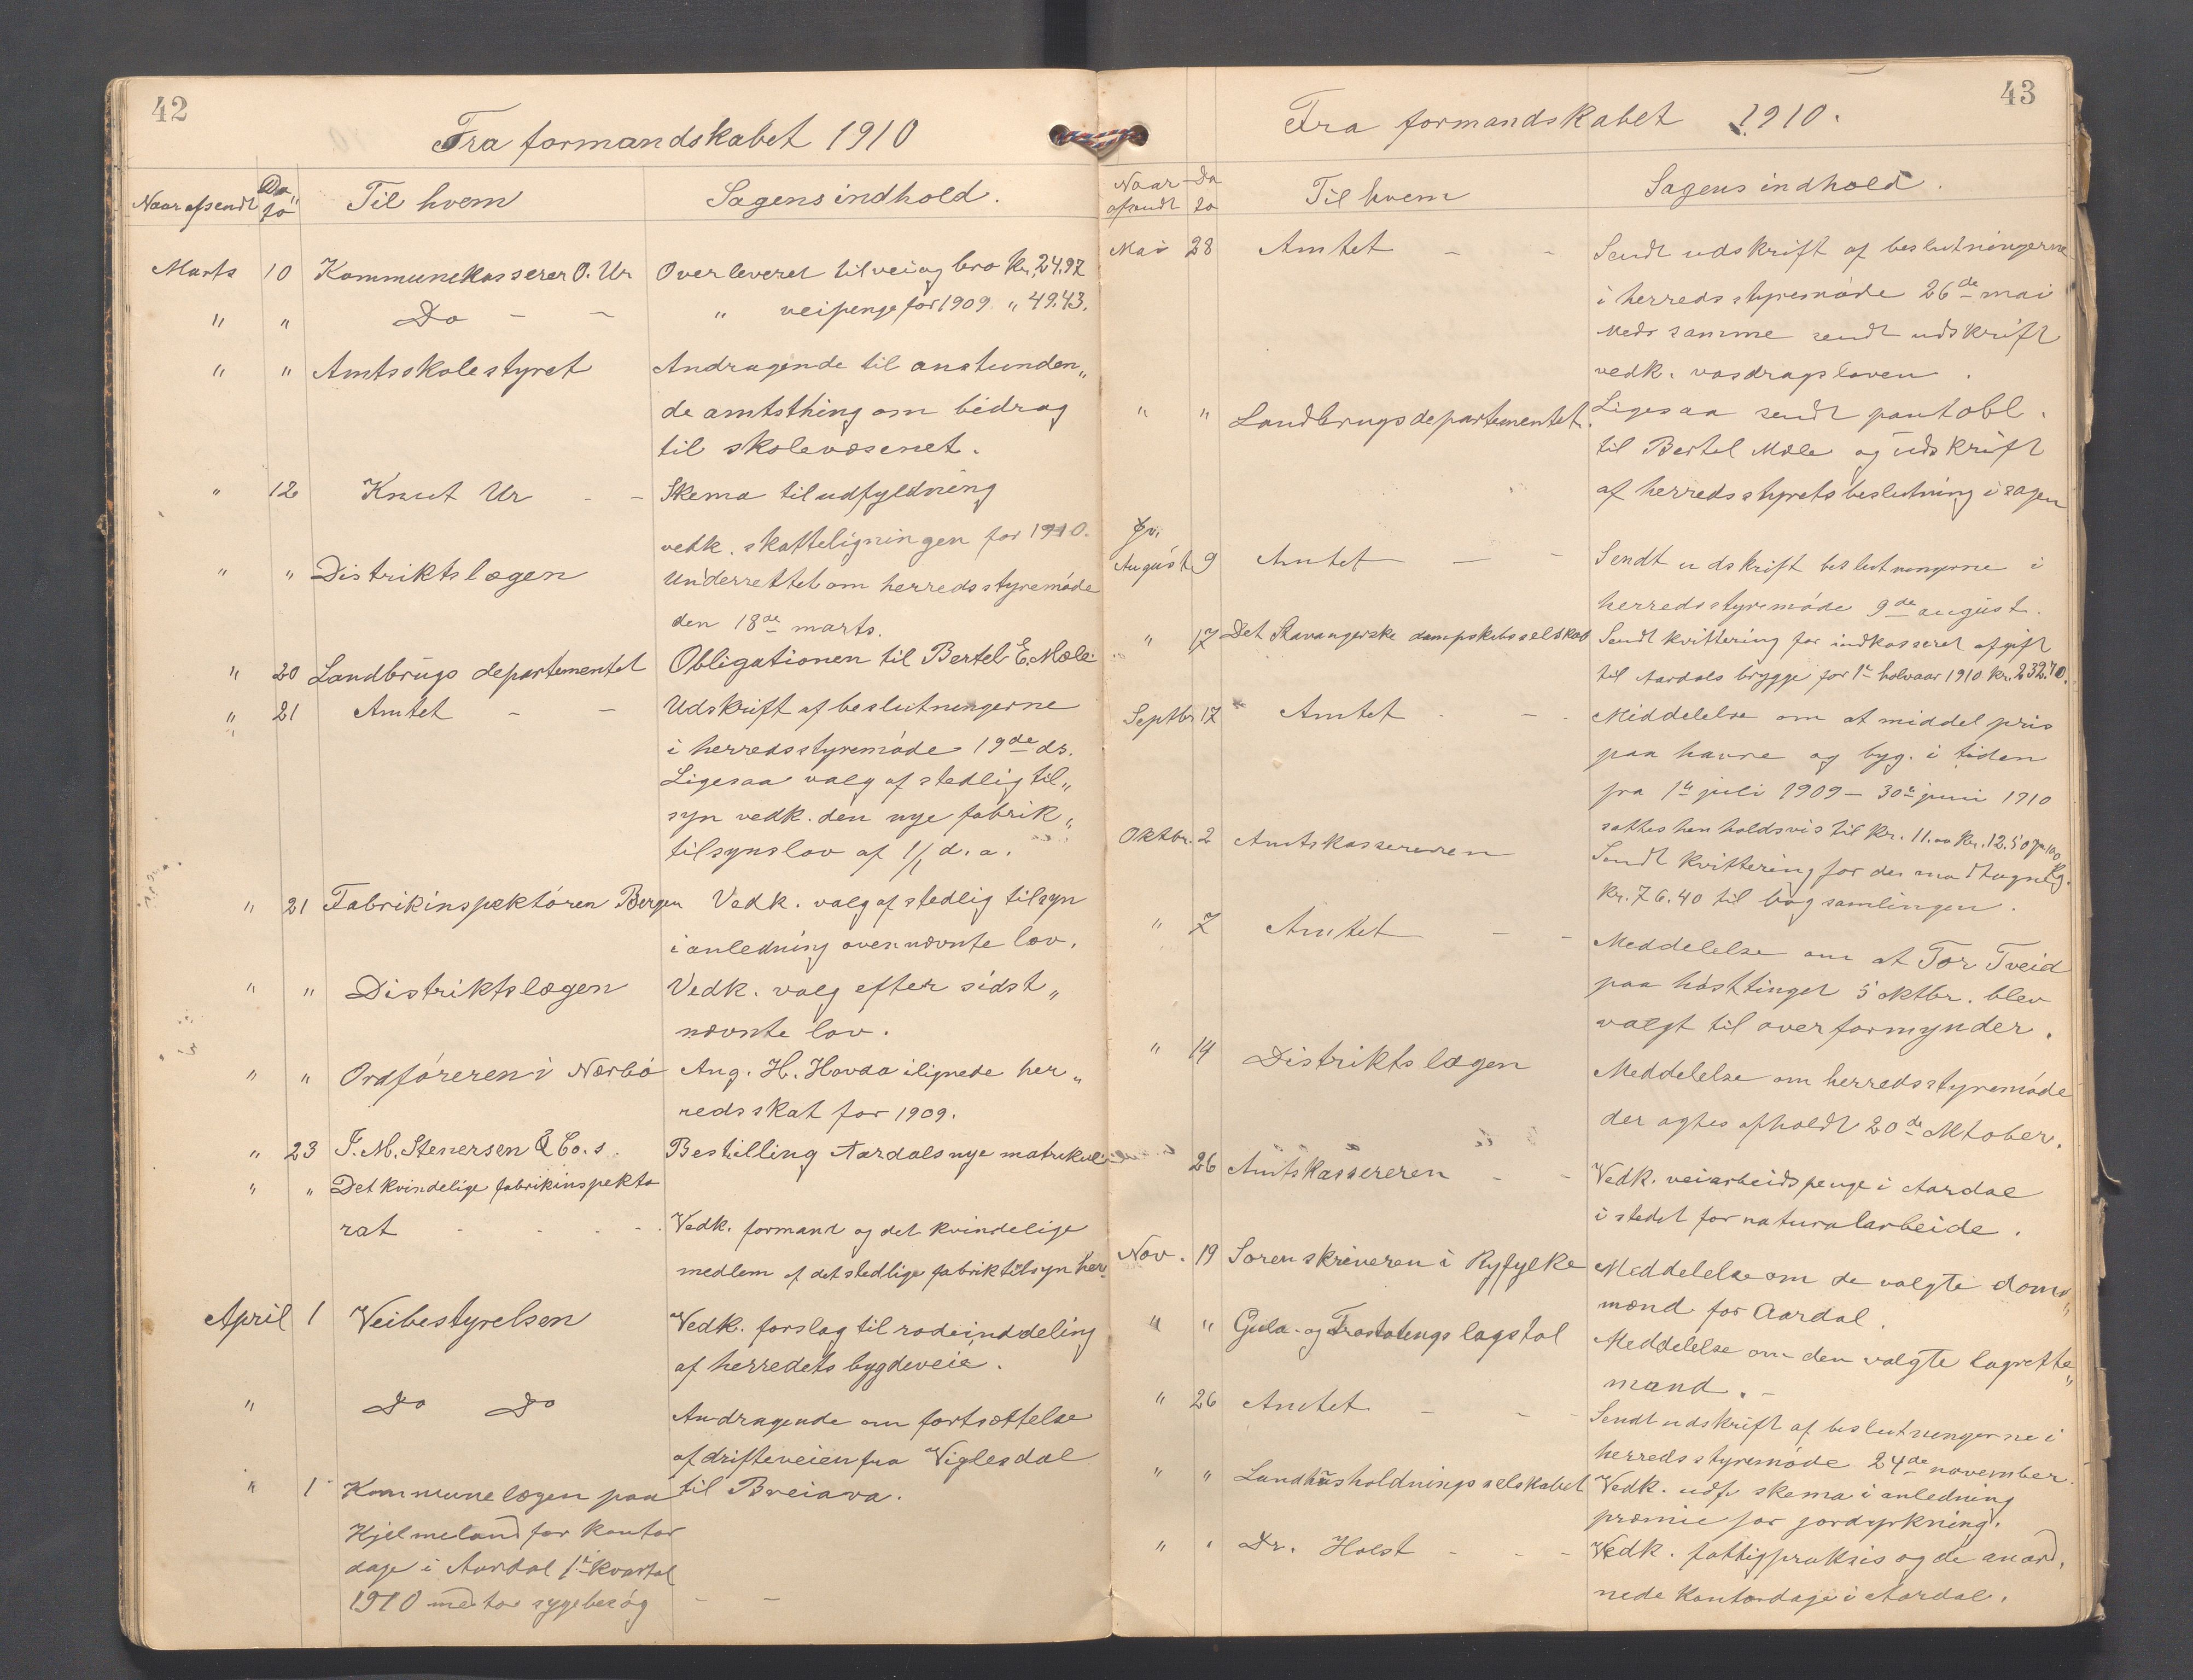 42
Fra formandskabet 1910
Naar afsendt Da to Til hvem Sagens indhold.
Marts 10 Kommunekasserer O. Ur Overleveret til vei og bro kr. 24.97
" " Do - - " veipenge for 1909 " 49.43.
" " Amtsskolestyret Andragende til anstunden"
de amtsthing om bidrag
til skolevæsenet.
" 12 Knut Ur - - Skema til udfyldning
vedk. skatteligningen for 1910.
" " Distriktslægen Underrettet om herredsstyremøde
den 18de marts.
" 20 Landbrugsdepartementet Obligationen til Bertel E. Mæle
" 21 Amtet - - Udskrift af beslutningerne
i herredsstyremøde 19de ds.
Ligesaa valg af stedlig til"
syn vedk. den nye fabrik"
tilsynslov af 1/1 d. a.
" 21 Fabrikinspektøren Bergen Vedk. valg af stedlig tilsyn
i anledning ovennævnte lov.
" " Distriktslægen Vedk. valg efter sidst"
nævnte lov.
" " Ordføreren i Nærbø Ang. H. Hovda ilignede her"
redsskat for 1909.
" 23 J. M. Stenersen & Co. s. Bestilling Aardals nye matrikul
" " Det kvindelige fabrikinspekto
rat - - - Vedk. formand og det kvindelige
medlem af det stedlige fabriktilsyn her
April 1 Veibestyrelsen Vedk. forslag til rodeinddeling
af herredets bygdeveie.
" Do Do Andragende om fortsættelse
af drifteveien fra Viglesdal
" 1 Kommunelægen paa til Breiava.
Hjelmeland for kontor
dage i Aardal 1ste kvartal
1910 med to sygebesøg - -
43
Fra formandskabet 1910.
Naar afsendt Da to Til hvem Sagens indhold.
Mai 28 Amtet - - Sendt udskrift af beslutningerne
i herredsstyremøde 26de mai
Med samme sendt udskrift
vedk. vasdragsloven.
" " Landbrugsdepartementet. Ligesaa sendt pantobl.
til Bertel Mæle og udskrift
af herredsstyrets beslutning i sagen
August 9 Amtet - - Sendt udskrift beslutningerne i
herredsstyremøde 9de august.
" 17 Det Stavangerske dampskibsselskab Sendt kvittering for indkasseret afgift
til Aardals brygge for 1ste halvaar 1910 kr. 232.70.
Septbr 17 Amtet - - Middelelse om at middelpris
paa havre og byg. i tiden
fra 1ste juli 1909 - 30te juni 1910
sattes henholdsvis til kr. 11.00 kr. 12.50 pr 100 kg.
Oktbr. 2 Amtskassereren Sendt kvittering for de modtagne
kr. 76.40 til bogsamlingen.
" 7 Amtet - - Meddelelse om at Tor Tveid
paa høsttinget 5 oktbr. blev
valgt til overformynder.
" 14 Distriktslægen Meddelelse om herredsstyremøde
der agtes afholdt 20de oktober.
26 Amtskassereren - - Vedk. veiarbeidspenge i Aardal
i stedet for naturalarbeide.
Nov. 19 Sorenskriveren i Ryfylke Meddelelse om de valgte doms"
mænd for Aardal.
" " Gula- og Frostatings lagstol Meddelelse om den valgte lagrette"
mand. -
" 26 Amtet - - Sendt udskrift af beslutningerne i
herredsstyremøde 24de november.
" " Landhusholdningsselskabet Vedk. udf. skema i anledning
præmie for jordyrkning.
" " Dr. Holst - - - Vedk. fattigpraksis og de anord,
nede kontordage i Aardal.